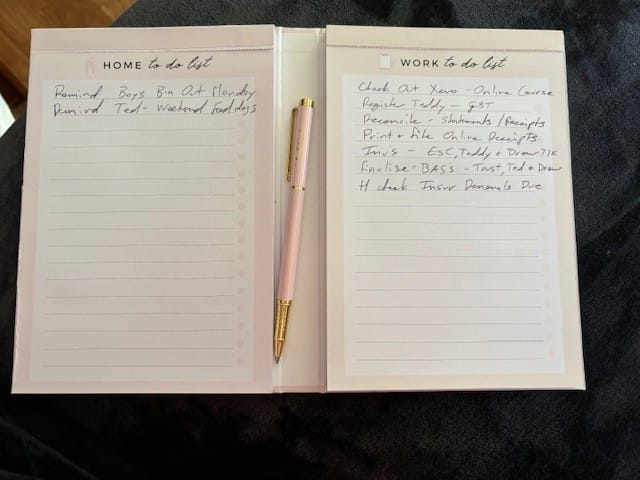 HOME to do list
Remind Boys Bin Out Monday
Remind Ted - Weekend Food dogs
WORK to do list
Check Out Xero - Online Course
Register Teddy - GST
Reconcile - Statements / Receipts
Print + File Online Receipts
Inv's - ESC, Teddy + Drew
Finalise - BAS's - Trust, Ted + Drew
H check Insur Renewals Due